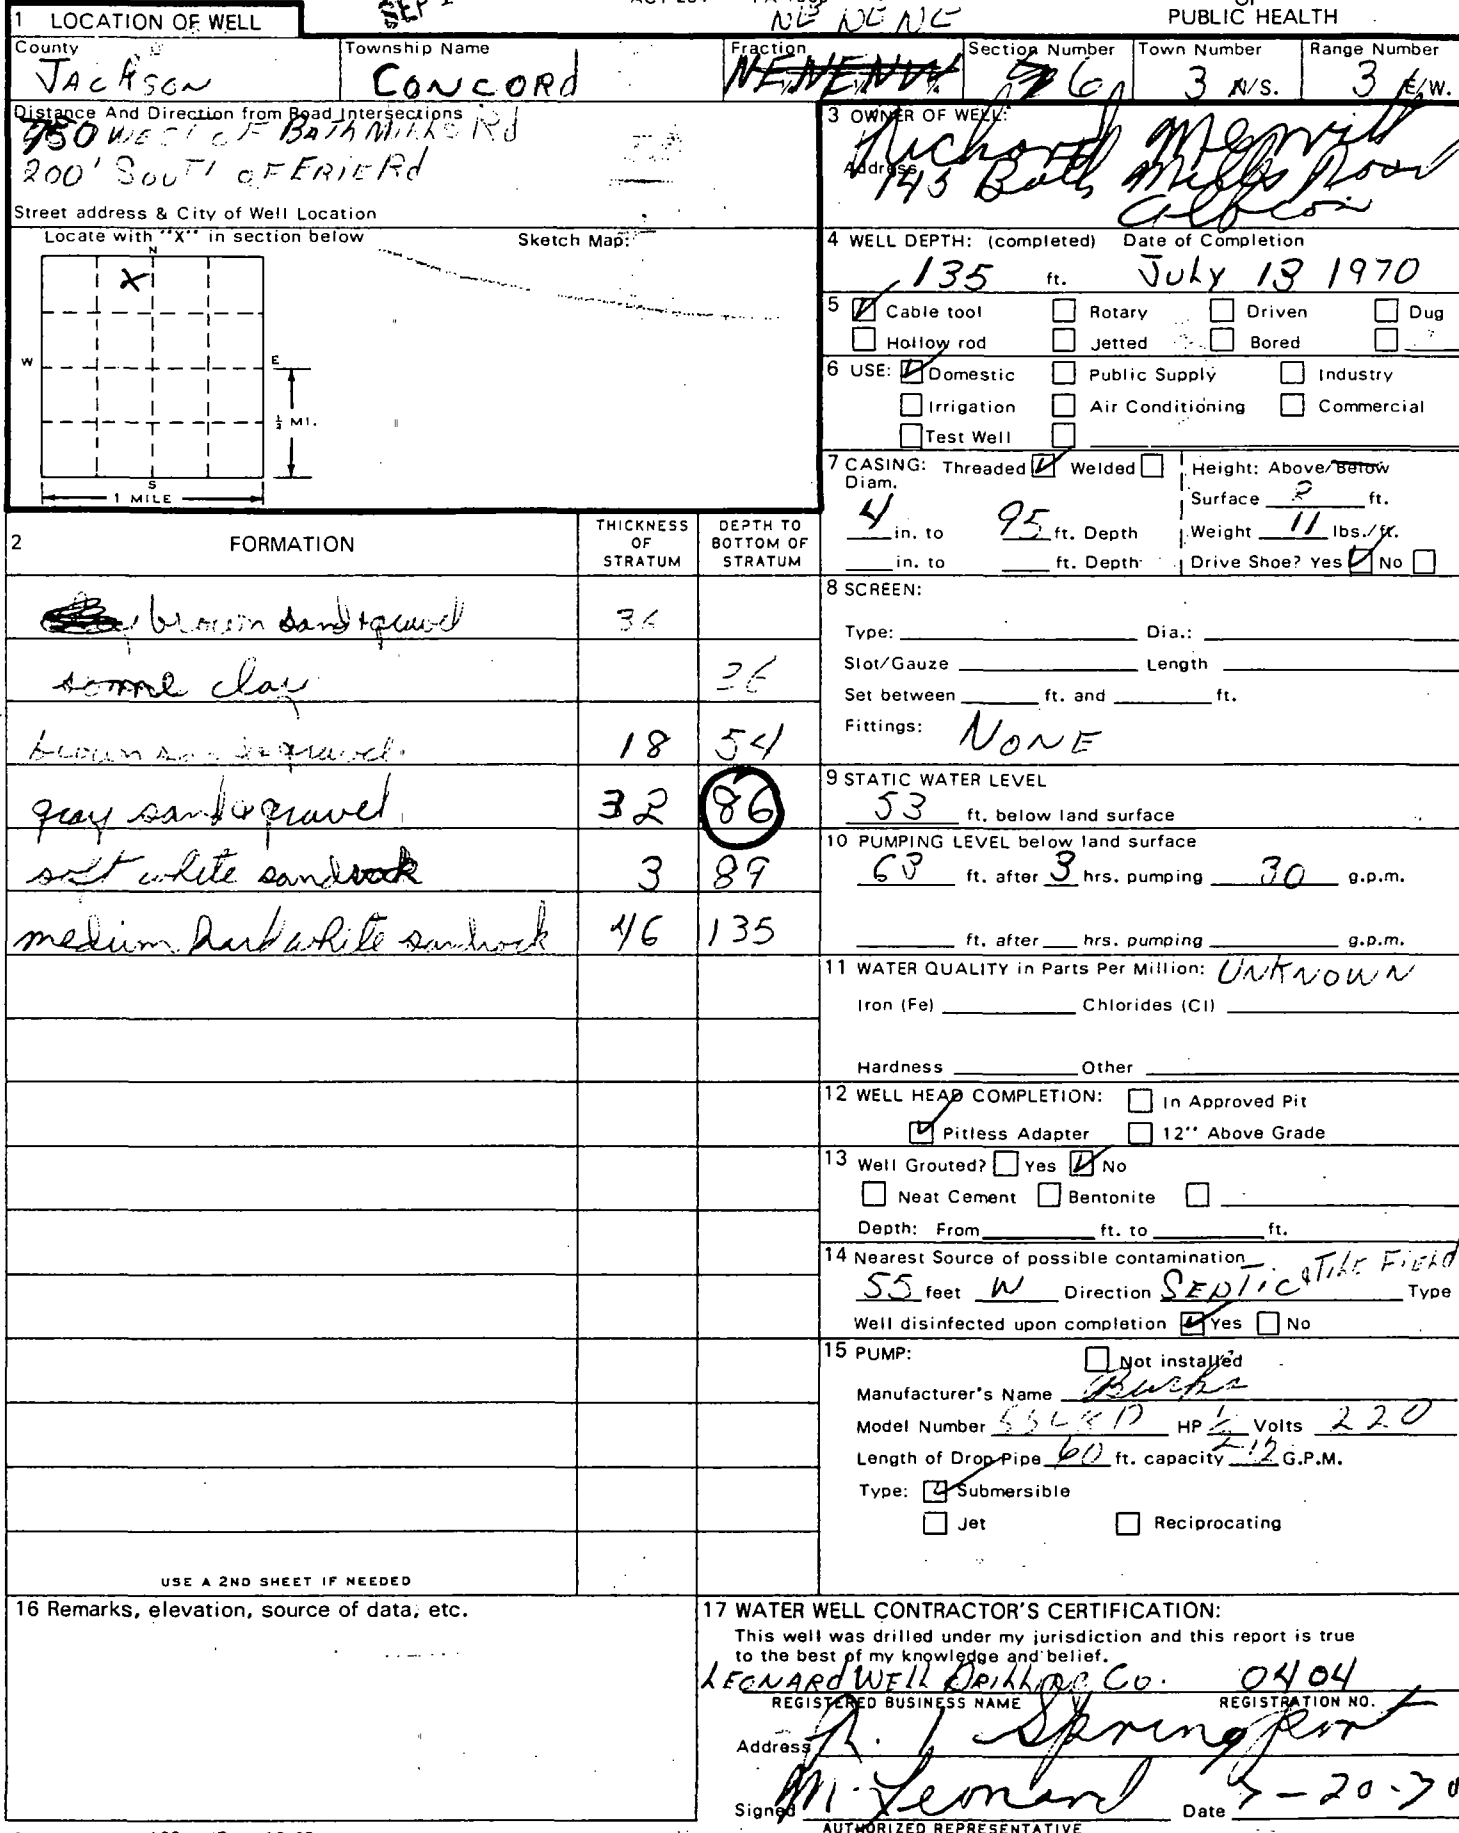 NE NE NE
PUBLIC HEALTH
1 LOCATION OF WELL
SEP
County
Jackson
Township Name
Concord
Fraction
Section Number
6
Town Number
3 N/S.
Range Number
3 E/W.
Distance And Direction from Road Intersections
950 West of Bath Mills Rd
200' South of Erie Rd
Street address & City of Well Location
Locate with "X" in section below
Sketch Map:
N
X
W
E
½ MI.
S
1 MILE
3 OWNER OF WELL:
Richard Merrill
Address
143 Bath Mills Road
Albion
4 WELL DEPTH: (completed) Date of Completion
135 ft. July 13 1970
5 Cable tool Rotary Driven Dug
Hollow rod Jetted Bored
6 USE: Domestic Public Supply Industry
Irrigation Air Conditioning Commercial
Test Well
7 CASING: Threaded Welded
Diam.
4 in. to 95 ft. Depth
in. to ft. Depth
Height: Above/Below
Surface 2 ft.
Weight 11 lbs./ft.
Drive Shoe? Yes No
2 FORMATION
THICKNESS OF STRATUM
DEPTH TO BOTTOM OF STRATUM
brown sand & gravel 36
some clay 36
brown sand & gravel 18 54
gray sand & gravel 32 86
soft white sandrock 3 89
medium hard white sandrock 46 135
USE A 2ND SHEET IF NEEDED
8 SCREEN:
Type: Dia.:
Slot/Gauze Length
Set between ft. and ft.
Fittings: None
9 STATIC WATER LEVEL
53 ft. below land surface
10 PUMPING LEVEL below land surface
63 ft. after 3 hrs. pumping 30 g.p.m.
ft. after hrs. pumping g.p.m.
11 WATER QUALITY in Parts Per Million: Unknown
Iron (Fe) Chlorides (Cl)
Hardness Other
12 WELL HEAD COMPLETION: In Approved Pit
Pitless Adapter 12" Above Grade
13 Well Grouted? Yes No
Neat Cement Bentonite
Depth: From ft. to ft.
14 Nearest Source of possible contamination
55 feet W Direction Septic & Tile Field Type
Well disinfected upon completion Yes No
15 PUMP: Not installed
Manufacturer's Name Burks
Model Number HP ½ Volts 220
Length of Drop Pipe 60 ft. capacity 12 G.P.M.
Type: Submersible
Jet Reciprocating
16 Remarks, elevation, source of data, etc.
17 WATER WELL CONTRACTOR'S CERTIFICATION:
This well was drilled under my jurisdiction and this report is true
to the best of my knowledge and belief.
Leonard Well Drilling Co. 0404
REGISTERED BUSINESS NAME REGISTRATION NO.
Address R. 1 Springport
Signed M. Leonard Date 7-20-70
AUTHORIZED REPRESENTATIVE